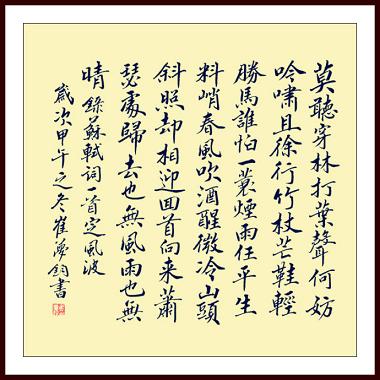 莫聽穿林打葉聲何妨
吟嘯且徐行竹杖芒鞋輕
勝馬誰怕一蓑煙雨任平生
料峭春風吹酒醒微冷山頭
斜照却相迎回首向来蕭
瑟處歸去也無風雨也無
晴 錄蘇軾詞一首定風波
歲次甲午之冬崔鈞書